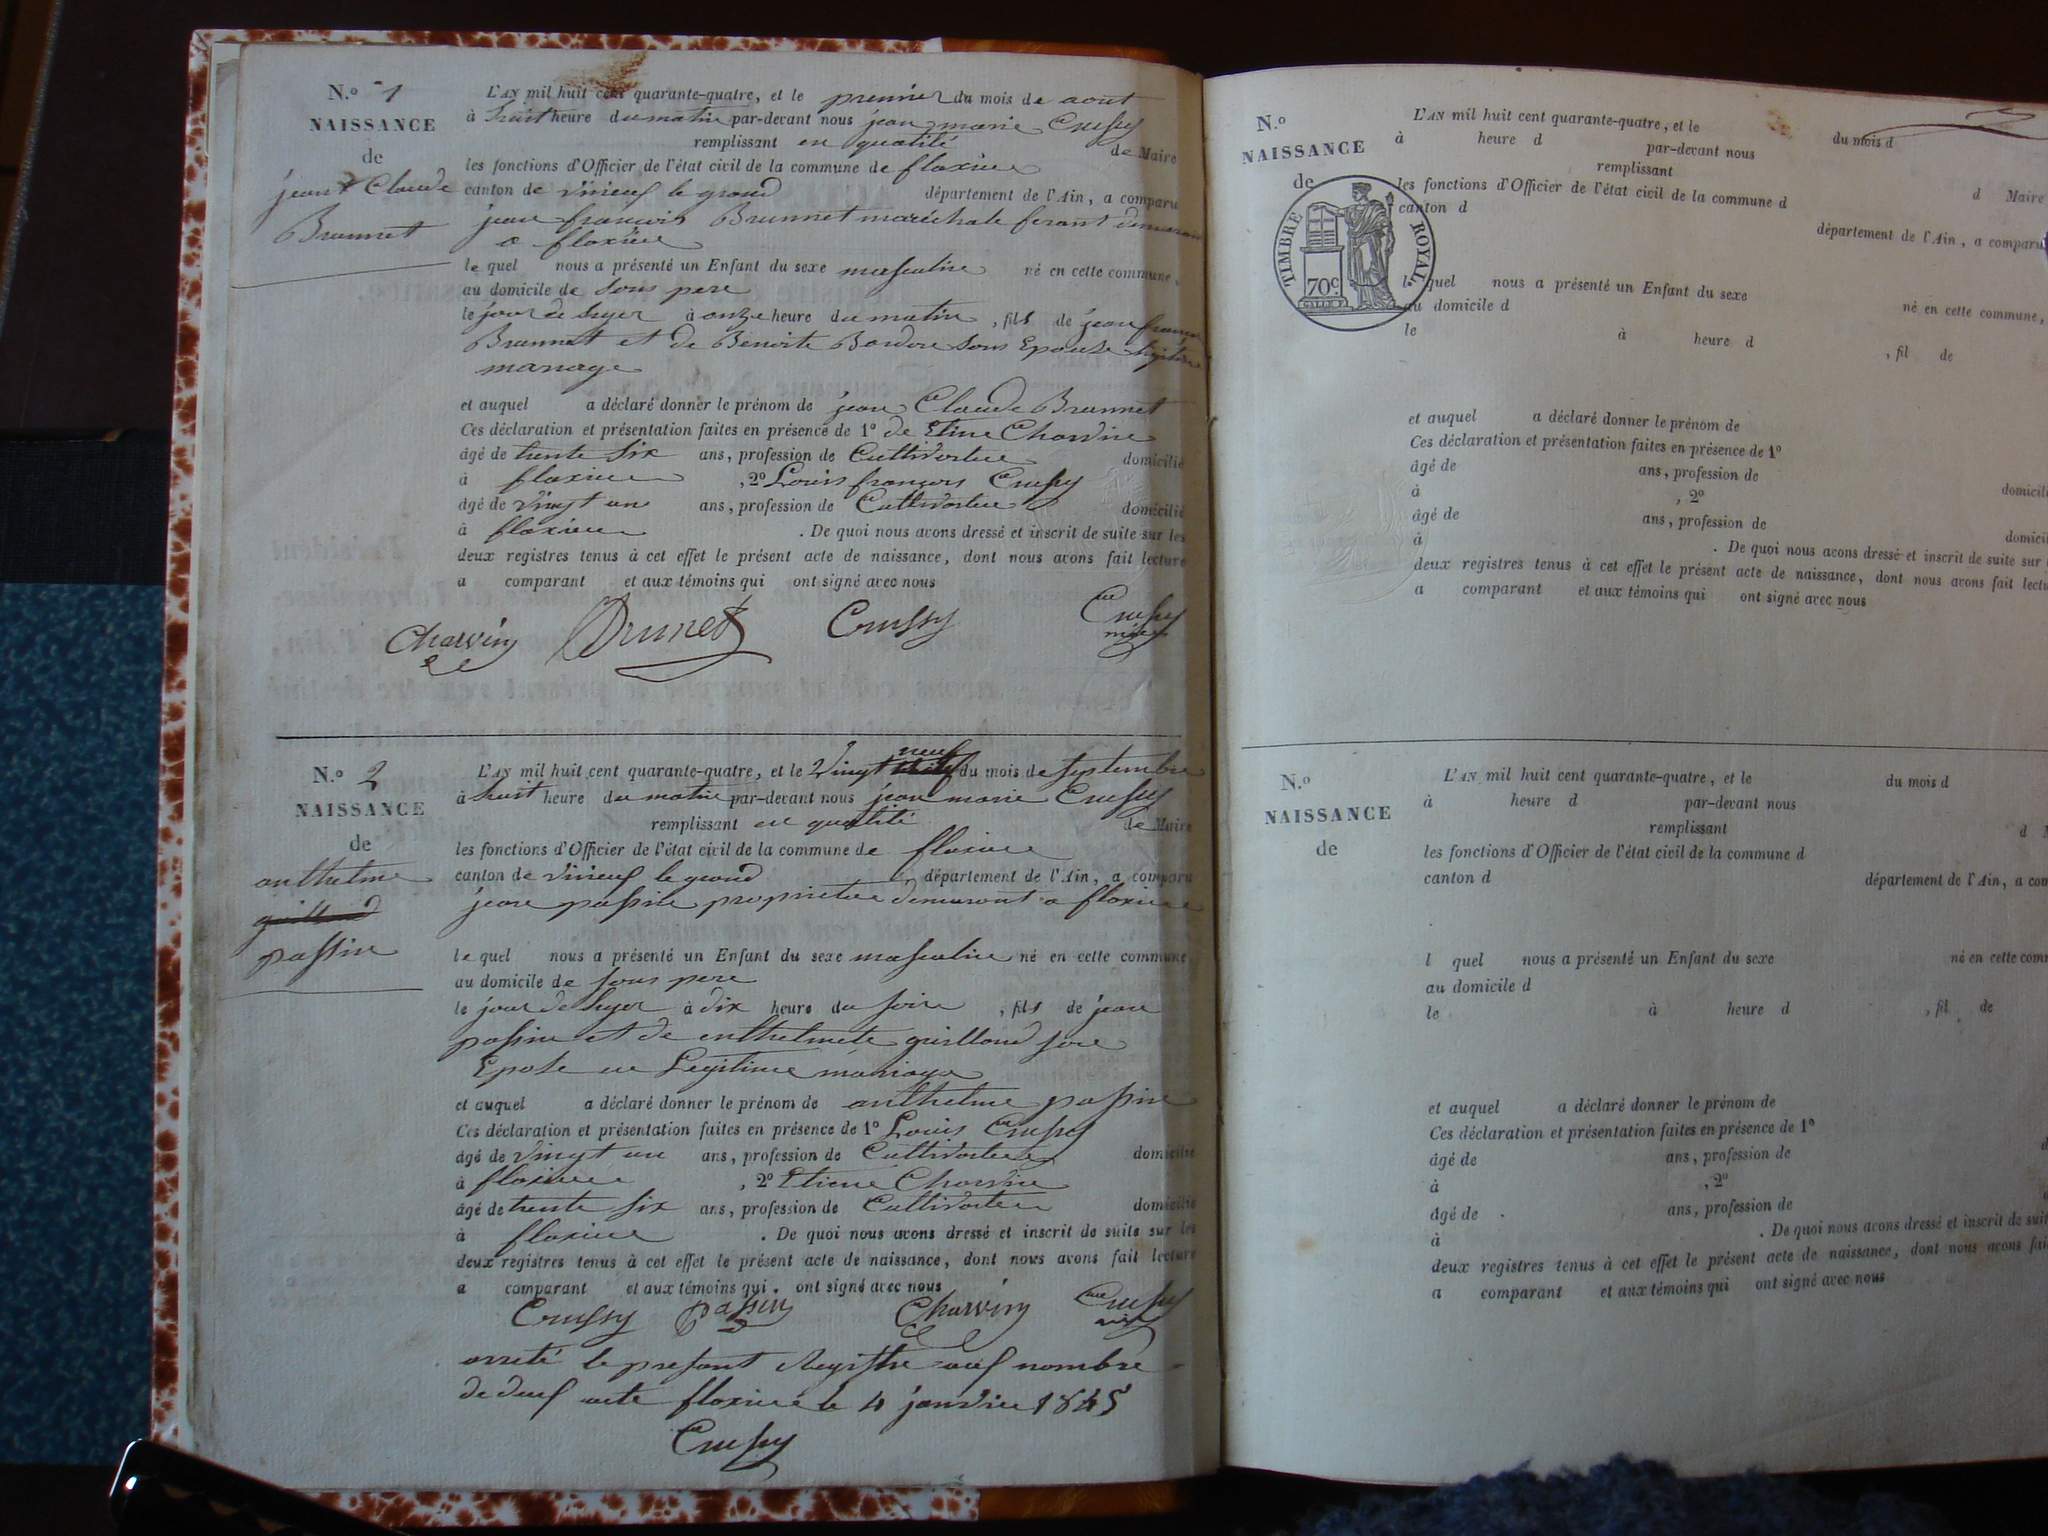 N.º 1
NAISSANCE
de
jean Claude
Brunnet
L'AN mil huit cent quarante-quatre, et le premier du mois de aout
à huit heure du matin par-devant nous jean marie Crussy
remplissant en qualité de Maire
les fonctions d'Officier de l'état civil de la commune de flaxieu
canton de virieux le grand département de l'Ain, a comparu
jean francois Brunnet maréchale ferant demeurant
a flaxieu
le quel nous a présenté un Enfant du sexe masculine né en cette commune,
au domicile de sons pere
le jour de hyer à onze heure du matin, fils de jean francois
Brunnet et de Benoite Bordere sons Epouse legitime
mariage
et auquel a déclaré donner le prénom de jean Claude Brunnet
Ces déclaration et présentation faites en présence de 1º de Etine Charvin
âgé de trente six ans, profession de Cultivateur domicilié
à flaxieu, 2º Louis françois Crussy
âgé de vingt un ans, profession de Cultivateur domicilié
à flaxieu. De quoi nous avons dressé et inscrit de suite sur les
deux registres tenus à cet effet le présent acte de naissance, dont nous avons fait lecture
a comparant et aux témoins qui ont signé avec nous
Charvin Brunet Crussy Crussy
maire
N.º 2
NAISSANCE
de
anthelme
guilland
passin
L'AN mil huit cent quarante-quatre, et le vingt neuf du mois de septembre
à huit heure du matin par-devant nous jean marie Crussy
remplissant en qualité de Maire
les fonctions d'Officier de l'état civil de la commune de flaxieu
canton de virieux le grand département de l'Ain, a comparu
jean passin proprietaire demeurant a flaxieu
le quel nous a présenté un Enfant du sexe masculine né en cette commune,
au domicile de sons pere
le jour de hyer à dix heure du soire, fils de jean
passin et de enthelmete guilland sone
Epose en Légitime mariage
et auquel a déclaré donner le prénom de anthelme passin
Ces déclaration et présentation faites en présence de 1º Louis Crussy
âgé de vingt un ans, profession de Cultivateur domicilié
à flaxieu, 2º Etiene Charvin
âgé de trente six ans, profession de Cultivateur domicilié
à flaxieu. De quoi nous avons dressé et inscrit de suite sur les
deux registres tenus à cet effet le présent acte de naissance, dont nous avons fait lecture
a comparant et aux témoins qui ont signé avec nous
Crussy passin Charvin Crussy
arreté le present Registre auf nombre
de deuf acte flaxieu le 4 janvier 1845
Crussy
2
N.º
NAISSANCE
de
TIMBRE ROYAL
70C
L'AN mil huit cent quarante-quatre, et le du mois d
à heure d par-devant nous
remplissant d Maire
les fonctions d'Officier de l'état civil de la commune d
canton d département de l'Ain, a comparu
l quel nous a présenté un Enfant du sexe né en cette commune,
au domicile d
le à heure d, fil de
et auquel a déclaré donner le prénom de
Ces déclaration et présentation faites en présence de 1º
âgé de ans, profession de
à, 2º domicil
âgé de ans, profession de
à. De quoi nous avons dressé et inscrit de suite sur
deux registres tenus à cet effet le présent acte de naissance, dont nous avons fait lectu
a comparant et aux témoins qui ont signé avec nous
N.º
NAISSANCE
de
L'AN mil huit cent quarante-quatre, et le du mois d
à heure d par-devant nous
remplissant d M
les fonctions d'Officier de l'état civil de la commune d
canton d département de l'Ain, a com
l quel nous a présenté un Enfant du sexe né en cette comm
au domicile d
le à heure d, fil de
et auquel a déclaré donner le prénom de
Ces déclaration et présentation faites en présence de 1º
âgé de ans, profession de
à, 2º
âgé de ans, profession de
à. De quoi nous avons dressé et inscrit de suit
deux registres tenus à cet effet le présent acte de naissance, dont nous avons fai
a comparant et aux témoins qui ont signé avec nous